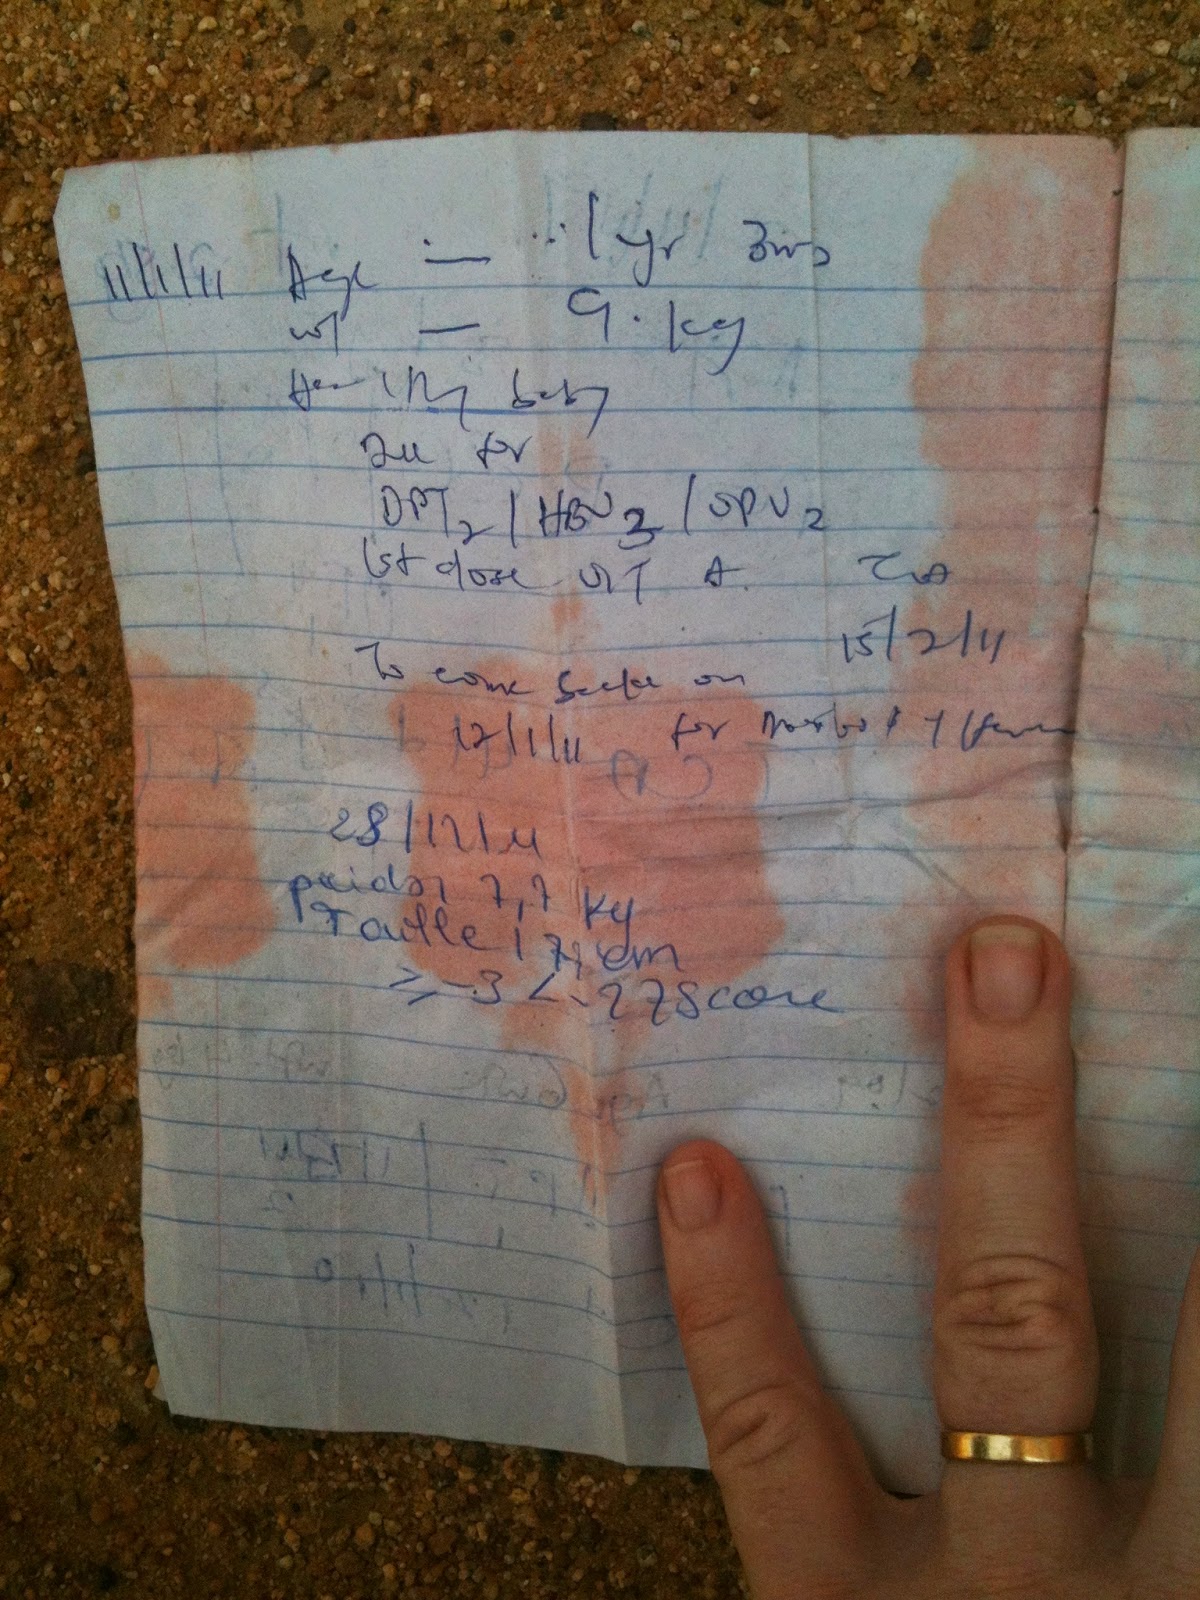 11/1/11 Age — 1 yr 3mo
wt — 9. kg
Healthy baby
Due for
DPT2 / HBV3 / OPV2
1st dose VIT A. TCA
15/2/11
To come back on
12/1/11 for & Y/
28/12/11
poids, 7,7 kg
Taille, cm
≥ -3 < -2 Z Score